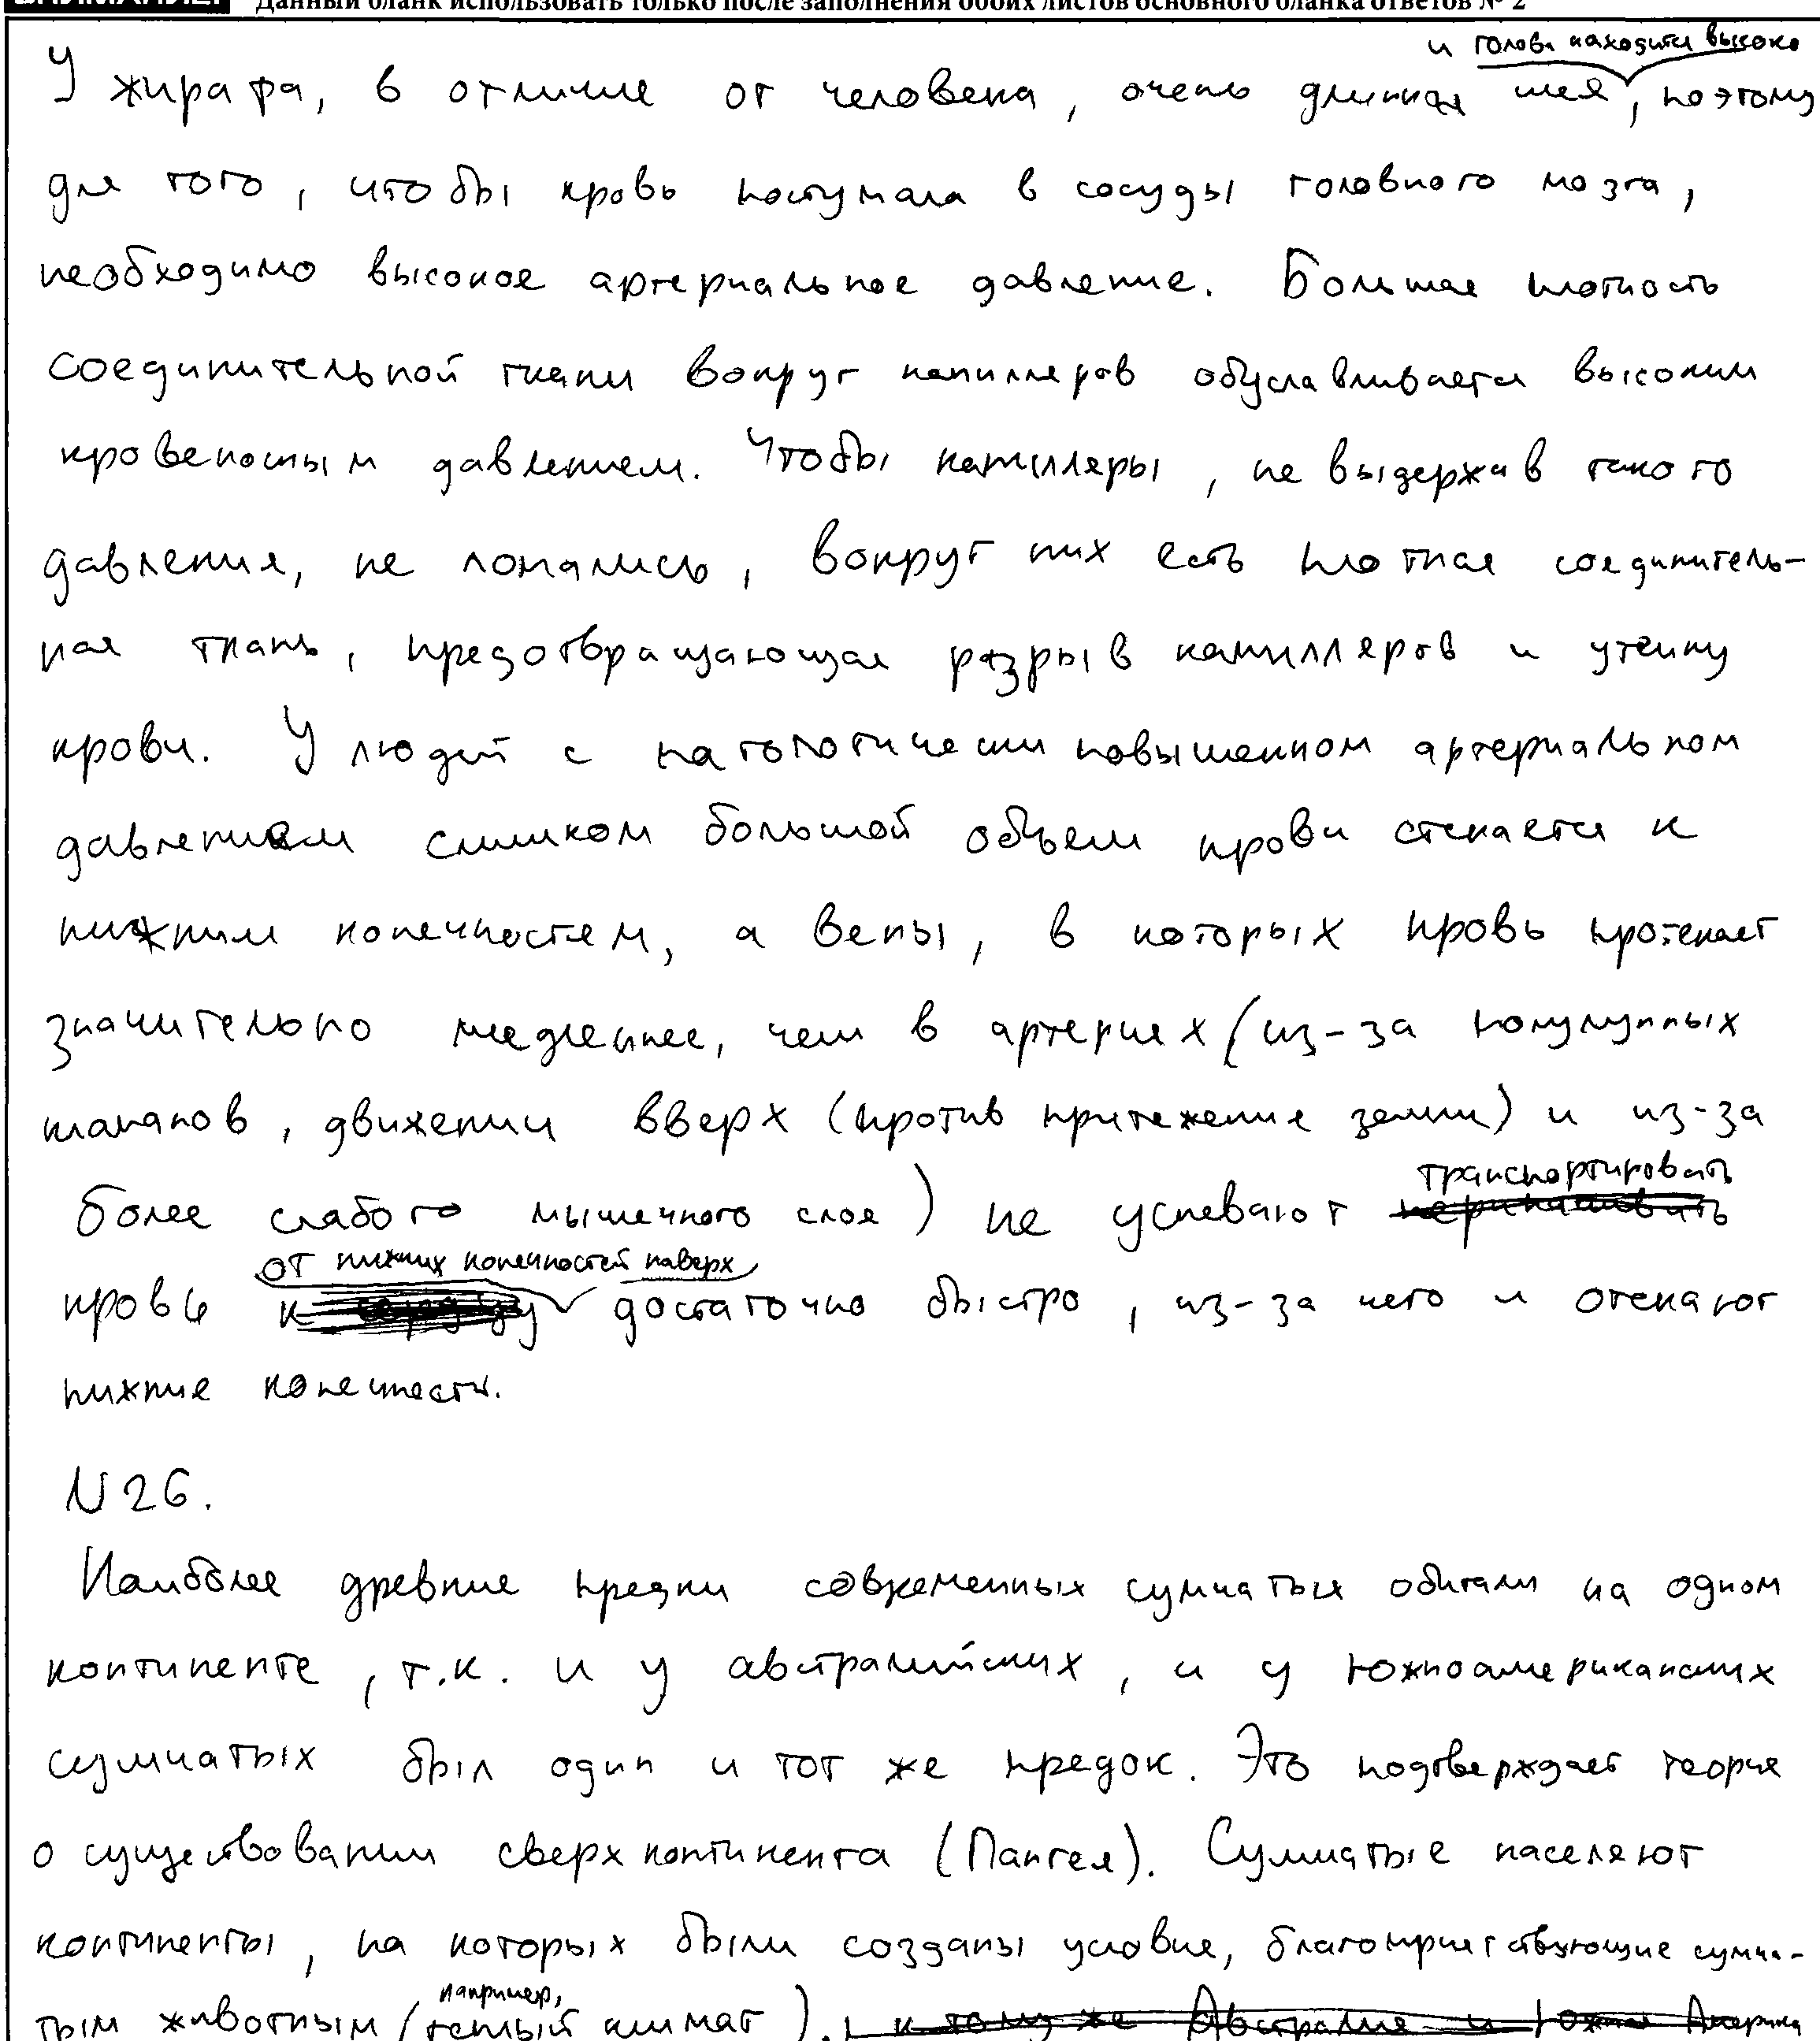 Данный бланк использовать только после заполнения обоих листов основного бланка ответов № 2
и голова находится высоко
У жирафа, в отличие от человека, очень длинная шея, поэтому
для того, чтобы кровь поступала в сосуды головного мозга,
необходимо высокое артериальное давление. Большая плотность
соединительной ткани вокруг капилляров обуславливается высоким
кровеносным давлением. Чтобы капилляры, не выдержав такого
давления, не лопались, вокруг них есть плотная соединитель-
ная ткань, предотвращающая разрыв капилляров и утечку
крови. У людей с патологически повышенном артериальном
давлением слишком большой объем крови стекается к
нижним конечностям, а вены, в которых кровь протекает
значительно медленнее, чем в артериях (из-за полулунных
клапанов, движении вверх (против притяжения земли) и из-за
транспортировать
более слабого мышечного слоя) не успевают
от нижних конечностей наверх
кровь к сердцу достаточно быстро, из-за чего и отекают
нижние конечности.
N26.
Наиболее древние предки современных сумчатых обитали на одном
континенте, т.к. и у австралийских, и у южноамериканских
сумчатых был один и тот же предок. Это подтверждает теория
о существовании сверхконтинента (Пангея). Сумчатые населяют
континенты, на которых были созданы условия, благоприятствующие сумча-
например,
тым животным (теплый климат). к тому же Австралия и Южная Америка